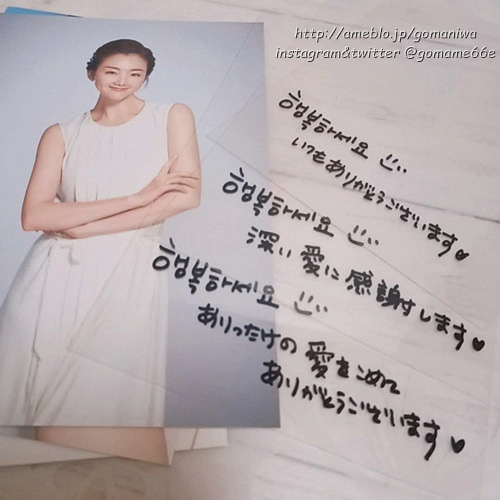 http://ameblo.jp/gomaniwa
instagram&twitter @gomame66e
행복하세요
いつもありがとうございます♥
행복하세요
深い愛に感謝します♥
행복하세요
ありったけの愛をこめて
ありがとうございます♥